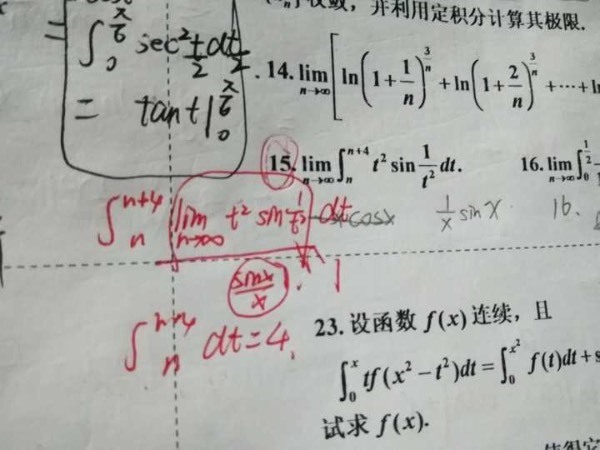 = ∫₀^(π/6) sec² t/2 dt/2
= tan t |₀^(π/6)
收敛, 并利用定积分计算其极限.
14. lim_(n→∞) [ ln(1+1/n)^(3/n) + ln(1+2/n)^(3/n) + ⋯ +
15. lim_(n→∞) ∫_n^(n+4) t² sin 1/t² dt.
16. lim_(n→∞) ∫₀^(1/2)
∫_n^(n+4) lim_(n→∞) t² sin 1/t² dt
cosx
1/x sin x
16.
sinx/x
1
∫_n^(n+4) dt = 4.
23. 设函数 f(x) 连续，且
∫₀^x tf(x² − t²)dt = ∫₀^(x²) f(t)dt +
试求 f(x).